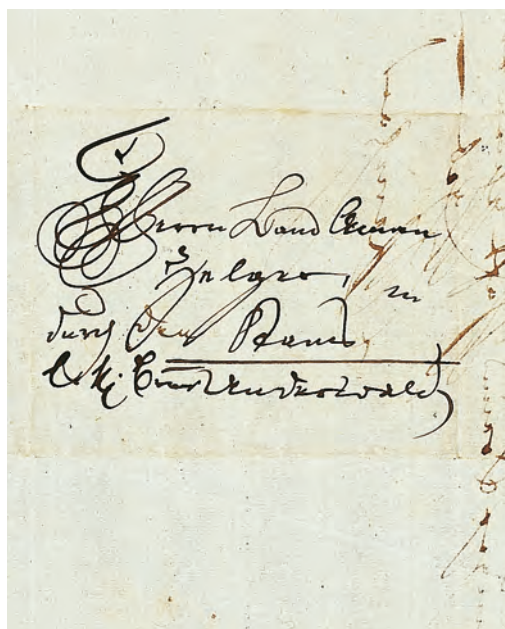 Herrn Land Aman
Zelger, in
durch den Stans
Underwald